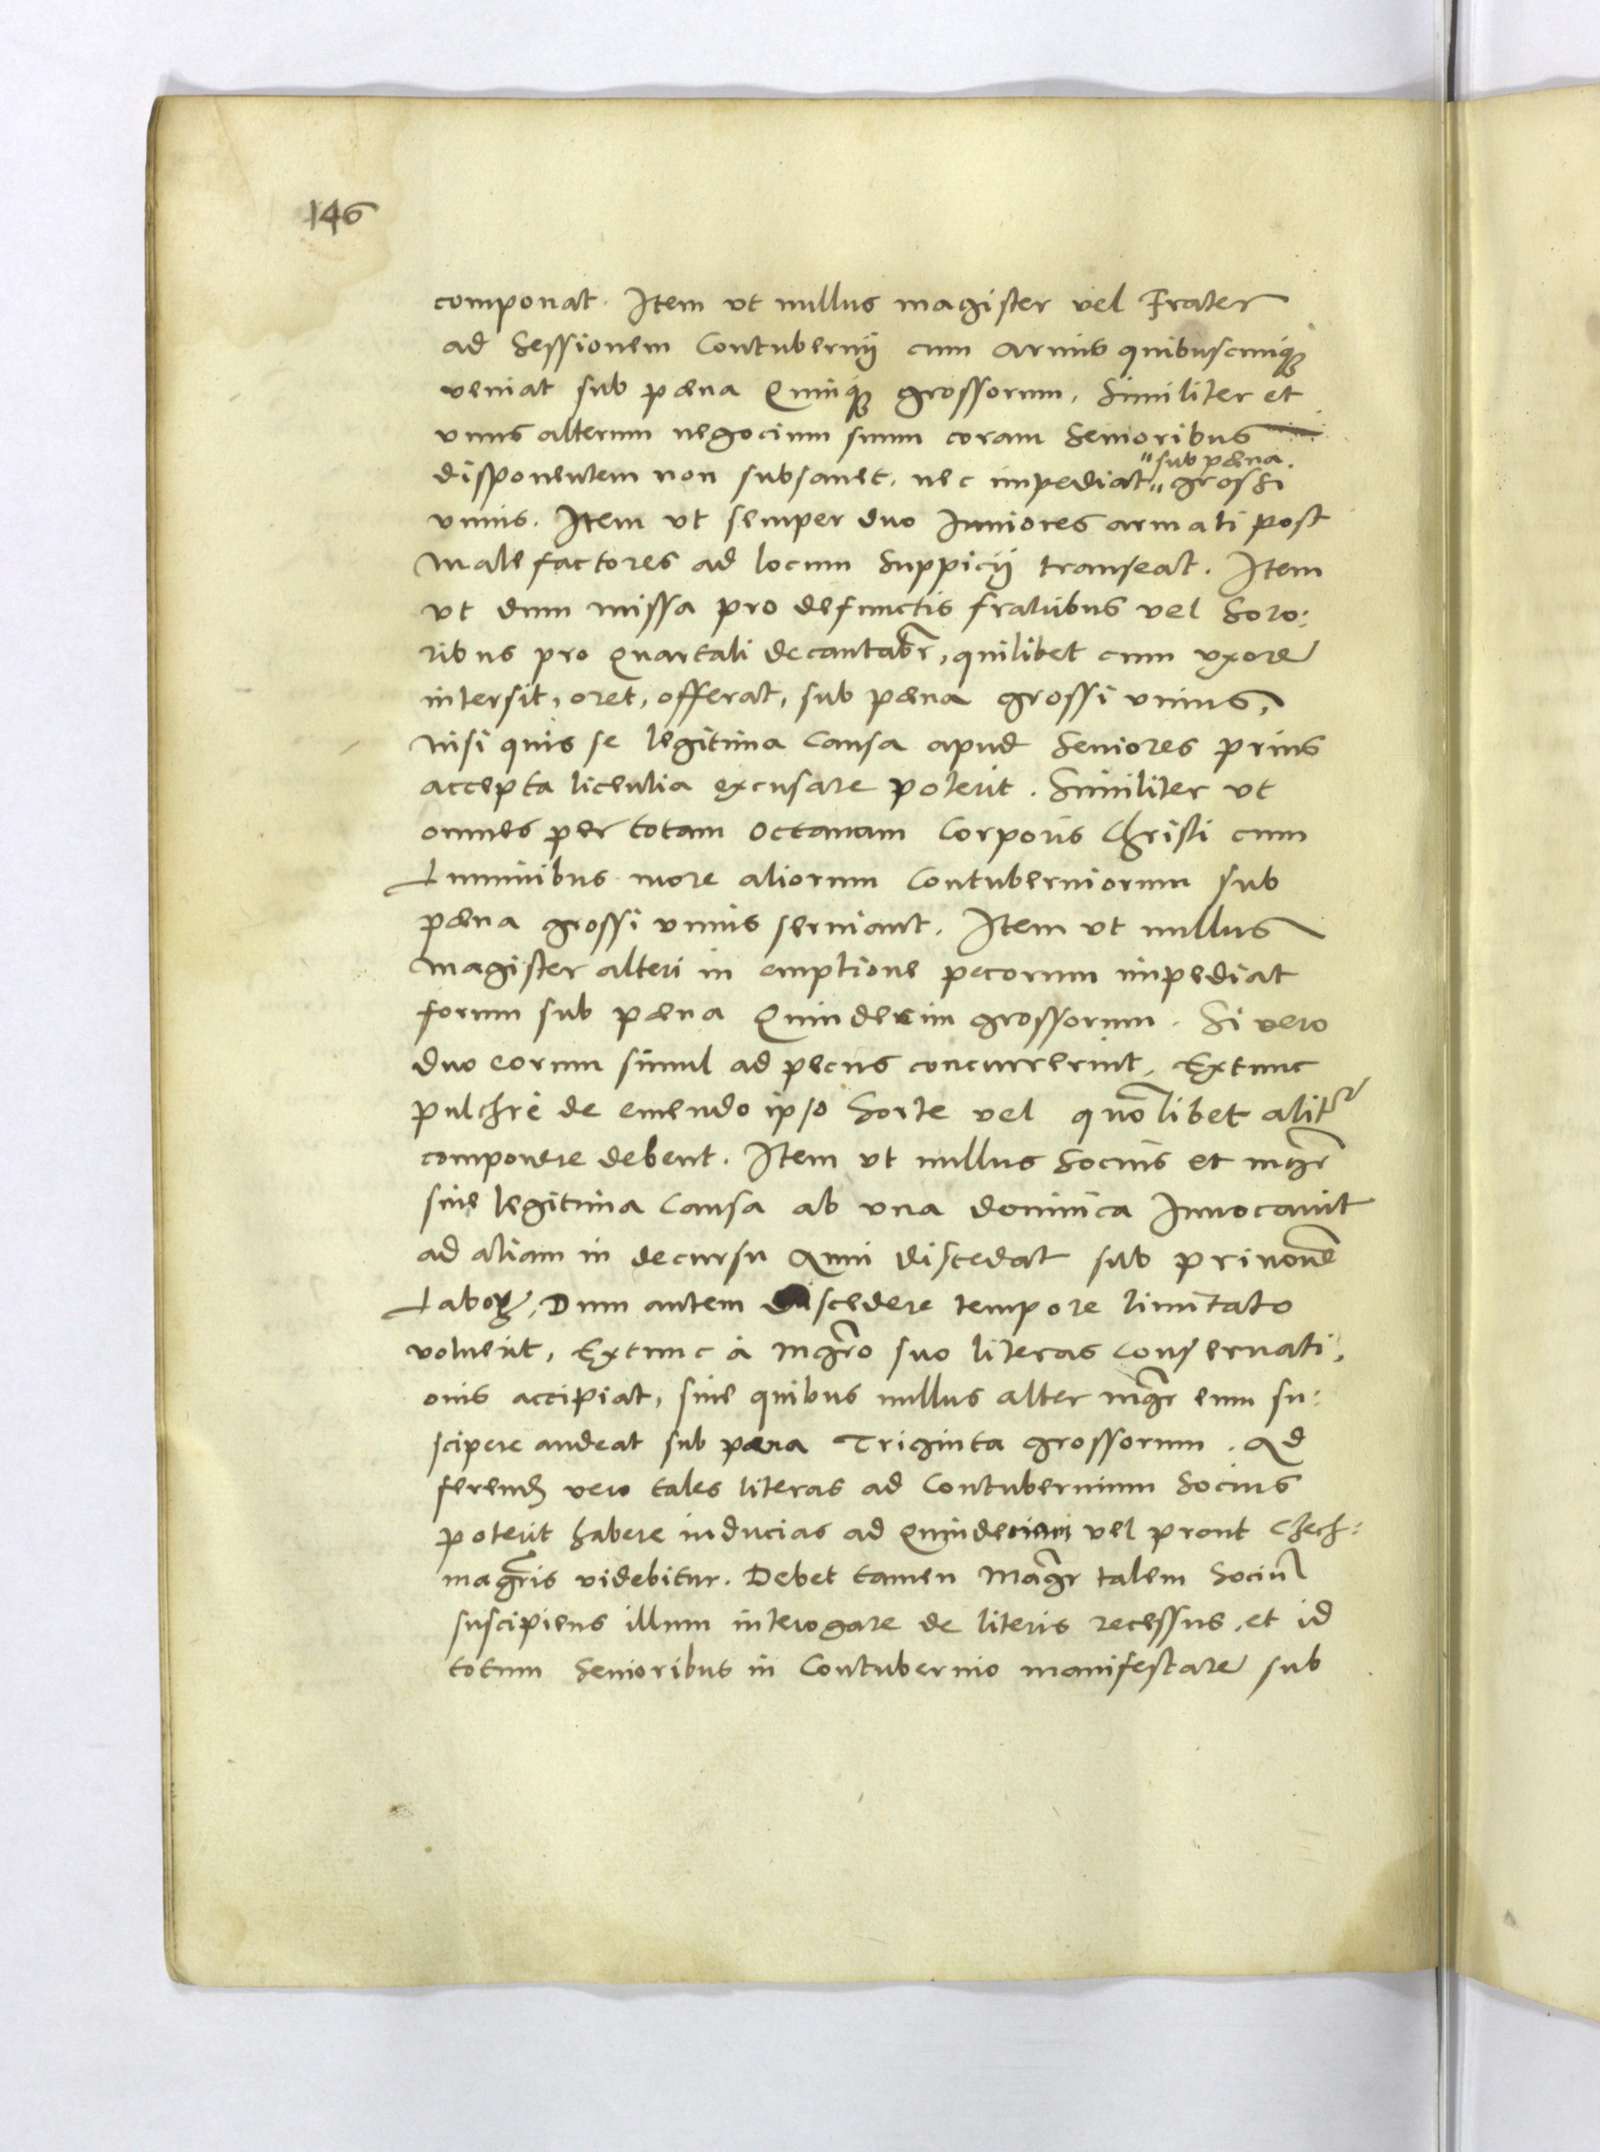 146
componat. Item vt nullus magister vel Frater
ad Sessionem Contubernij cum armis quibuscunq
veniat sub pæna Quinq grossorum, Similiter et
vnus alterum negocium suum coram Senioribus
"sub pæna.
disponentem non subsanet, nec impediat" grossi
vnius. Item vt semper duo Iuniores armati post
Malefactores ad locum Suppicij transeat. Item
vt dum missa pro defunctis fratribus vel Soro:
ribus pro Quartali decantabr̄, quilibet cum vxore
intersit, oret, offerat, sub pæna grossi vnius,
nisi quis se legitima Causa apud Seniores prius
accepta licentia excusare poterit. Similiter vt
omnes per totam octauam Corporis Christi cum
Luminibus more aliorum Contuberniorum sub
pæna grossi vnius seruiant. Item vt nullus
Magister alteri in emptione pecorum impediat
forum sub pæna Quindecim grossorum. Si vero
duo eorum simul ad pecus concurrerint, Extunc
pulchrè de emendo ipso Sorte vel quōlibet alitr
componere debent. Item vt nullus Socius et mḡr
sine legitima Causa ab vna dominica Inuocauit
ad aliam in decursu Anni discedat sub priuōne
Labor, Dum autem discedere tempore limitato
voluerit, Extunc à Mḡro suo literas Conseruati,
onis accipiat, sine quibus nullus alter mḡr eum su:
scipere audeat sub pæna Triginta grossorum. Ad
ferend vero tales literas ad Contubernium Socius
poterit habere inducias ad Quindecim vel prout Chech:
magr̄is videbitur. Debet tamen Māgr talem Sociū
suscipiens illum interogare de literis recessus, et id
totum Senioribus in Contubernio manifestare sub